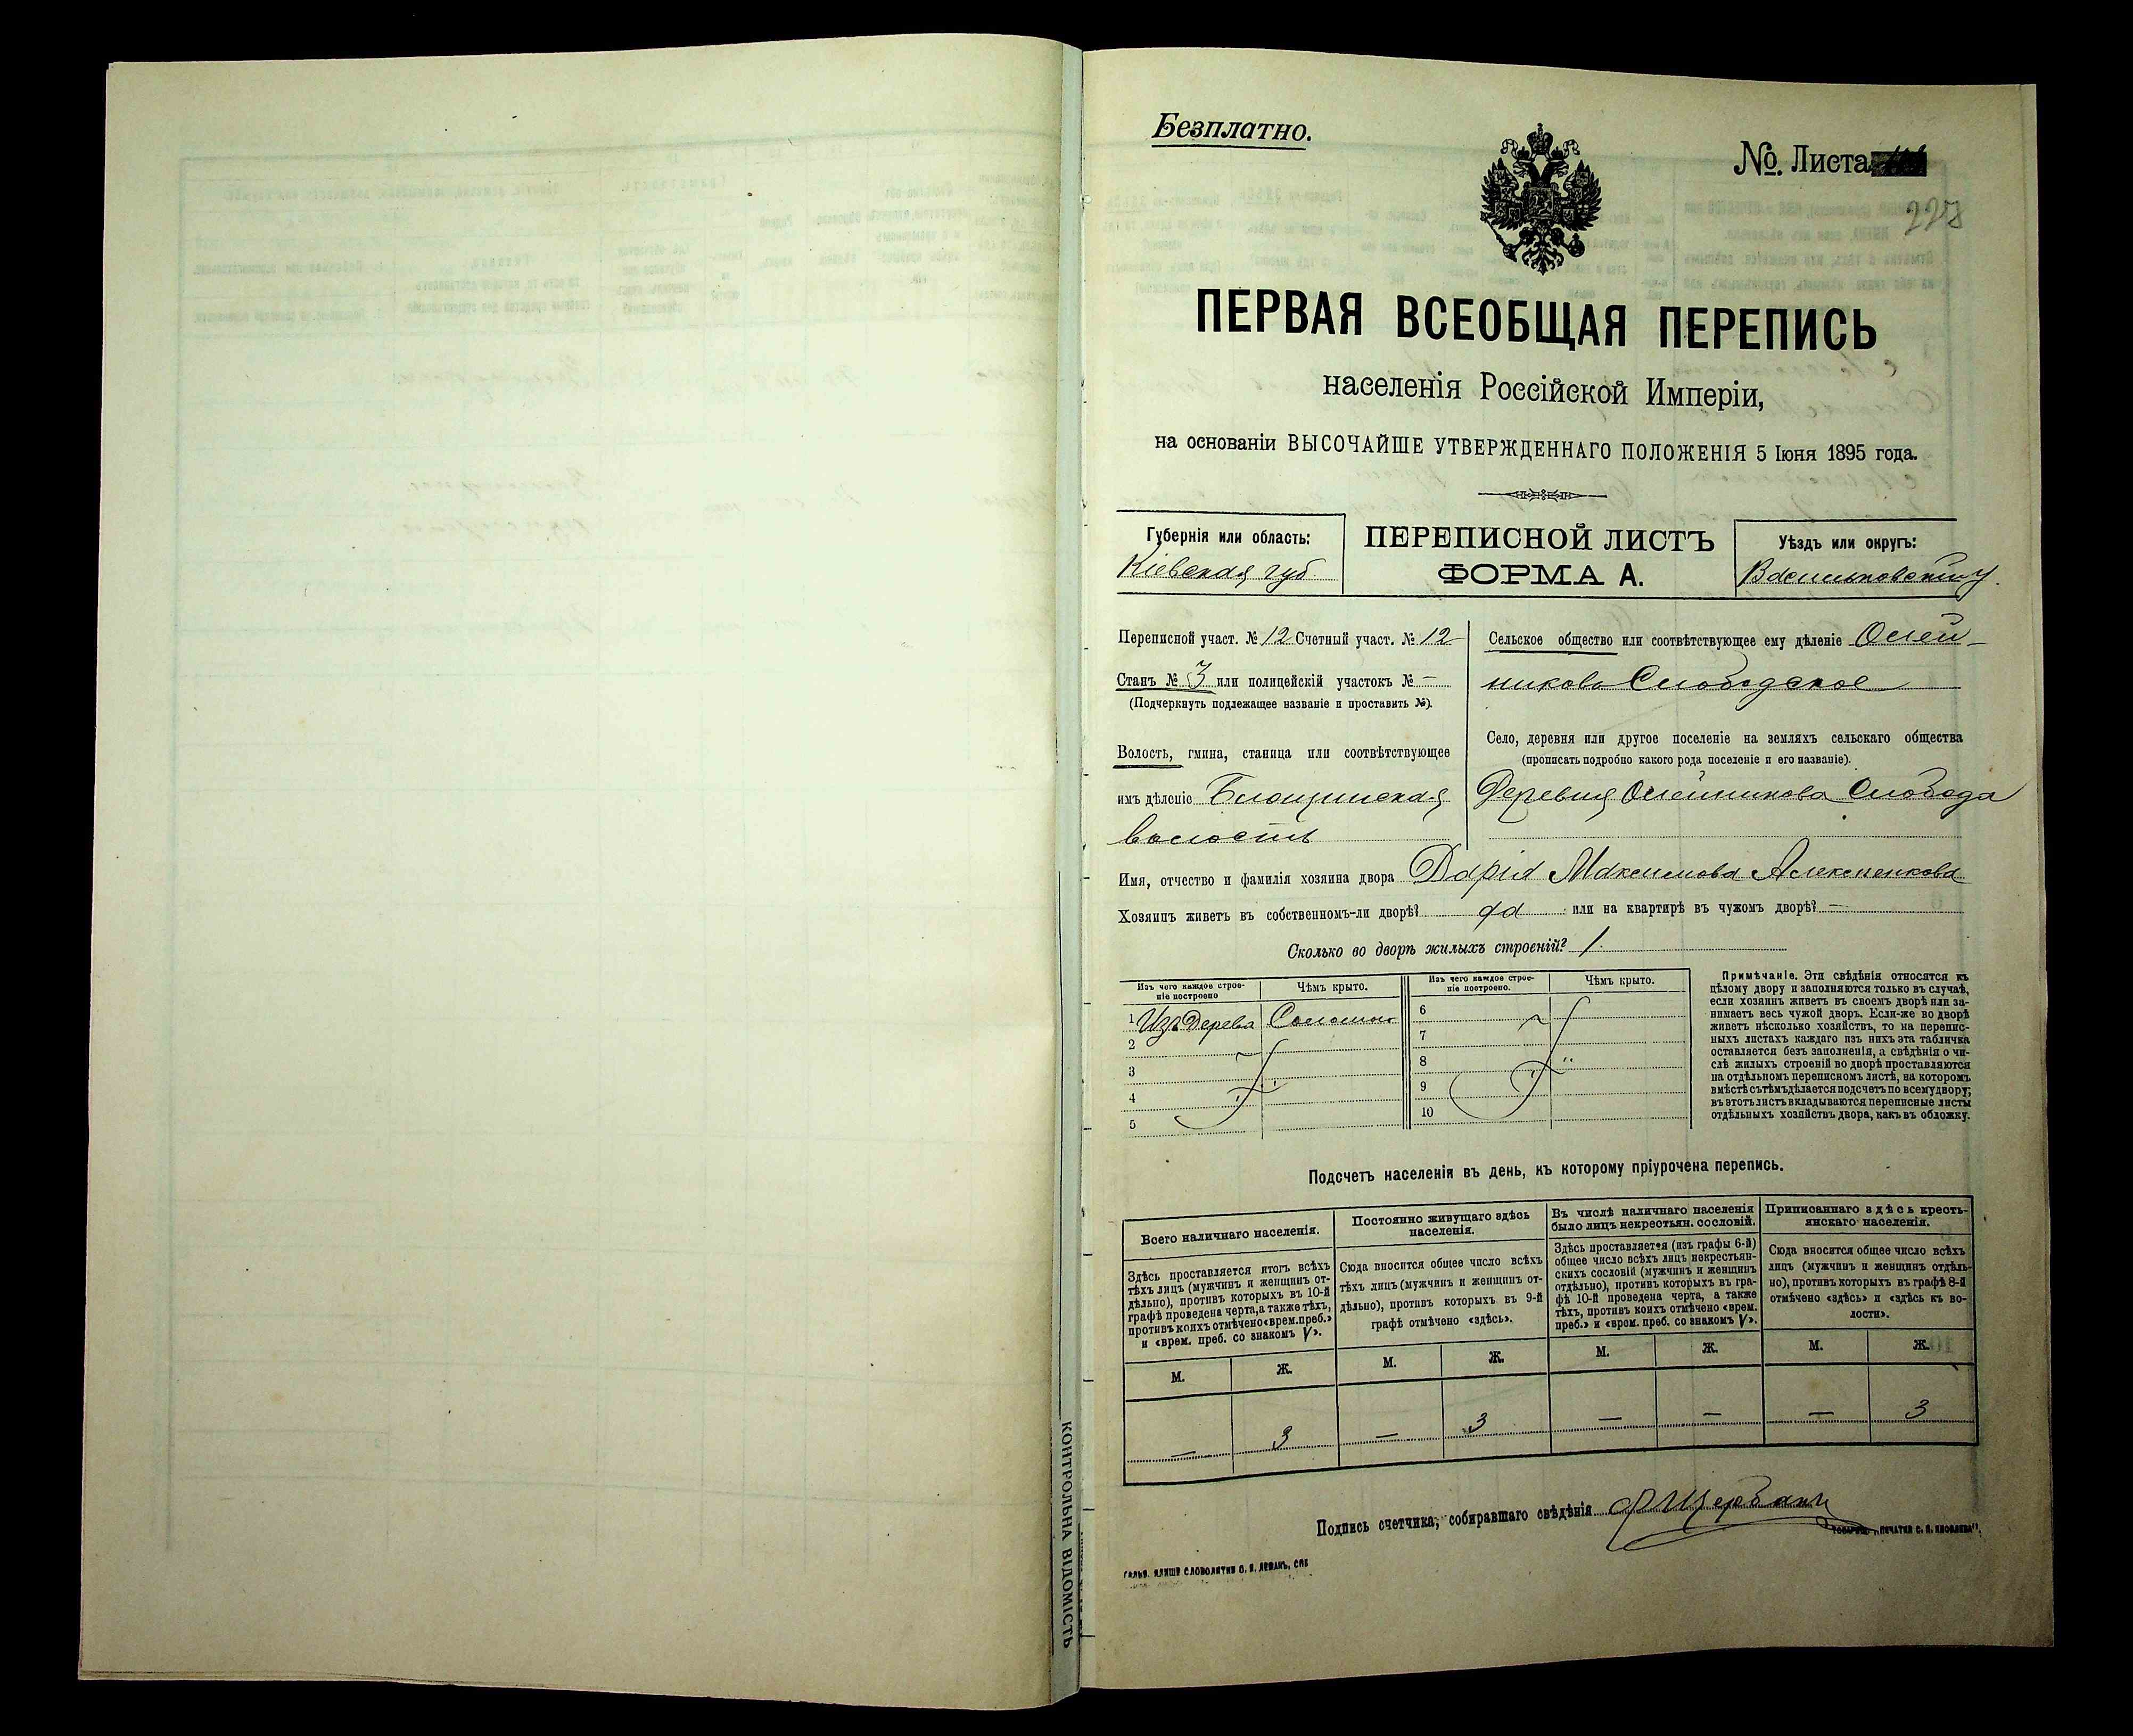 Безплатно.
№ Листа
228
ПЕРВАЯ ВСЕОБЩАЯ ПЕРЕПИСЬ
населенія Россійской Имперіи,
на основаніи ВЫСОЧАЙШЕ УТВЕРЖДЕННАГО ПОЛОЖЕНІЯ 5 Іюня 1895 года.
Губернія или область:
Кіевская губ.
ПЕРЕПИСНОЙ ЛИСТЪ
ФОРМА А.
Уѣздъ или округъ:
Васильковскій у.
Переписной участ. № 12 Счетный участ. № 12
Станъ № 3 или полицейскій участокъ № —
(Подчеркнуть подлежащее названіе и проставить №).
Волость, гмина, станица или соотвѣтствующее
имъ дѣленіе Блощинская
волость
Сельское общество или соотвѣтствующее ему дѣленіе Олей-
никово Слободское
Село, деревня или другое поселеніе на земляхъ сельскаго общества
(прописать подробно какого рода поселеніе и его названіе).
Деревня Олейникова Слобода
Имя, отчество и фамилія хозяина двора Дарія Максимова Алексенкова
Хозяинъ живетъ въ собственномъ-ли дворѣ? да или на квартирѣ въ чужомъ дворѣ? —
Сколько во дворѣ жилыхъ строеній? 1.
Изъ чего каждое строе-
ніе построено
Чѣмъ крыто.
Изъ чего каждое строе-
ніе построено.
Чѣмъ крыто.
1 Изъ Дерева Соломою
2
3
4
5
6
7
8
9
10
Примѣчаніе. Эти свѣдѣнія относятся къ
цѣлому двору и заполняются только въ случаѣ,
если хозяинъ живетъ въ своемъ дворѣ или за-
нимаетъ весь чужой дворъ. Если-же во дворѣ
живетъ нѣсколько хозяйствъ, то на перепис-
ныхъ листахъ каждаго изъ нихъ эта табличка
оставляется безъ заполненія, а свѣдѣнія о чи-
слѣ жилыхъ строеній во дворѣ проставляются
на отдѣльномъ переписномъ листѣ, на которомъ
вмѣстѣ съ тѣмъ дѣлается подсчетъ по всему двору;
въ этотъ листъ вкладываются переписные листы
отдѣльныхъ хозяйствъ двора, какъ въ обложку.
Подсчетъ населенія въ день, къ которому пріурочена перепись.
Всего наличнаго населенія.
Здѣсь проставляется итогъ всѣхъ
тѣхъ лицъ (мужчинъ и женщинъ от-
дѣльно), противъ которыхъ въ 10-й
графѣ проведена черта, а также тѣхъ,
противъ коихъ отмѣчено «врем. преб.»
и «врем. преб. со знакомъ V».
Постоянно живущаго здѣсь
населенія.
Сюда вносится общее число всѣхъ
тѣхъ лицъ (мужчинъ и женщинъ от-
дѣльно), противъ которыхъ въ 9-й
графѣ отмѣчено «здѣсь».
Въ числѣ наличнаго населенія
было лицъ некрестьян. сословій.
Здѣсь проставляется (изъ графы 6-й)
общее число всѣхъ лицъ некрестьян-
скихъ сословій (мужчинъ и женщинъ
отдѣльно), противъ которыхъ въ гра-
фѣ 10-й проведена черта, а также
тѣхъ, противъ коихъ отмѣчено «врем.
преб.» и «врем. преб. со знакомъ V».
Приписаннаго здѣсь кресть-
янскаго населенія.
Сюда вносится общее число всѣхъ
лицъ (мужчинъ и женщинъ отдѣль-
но), противъ которыхъ въ графѣ 8-й
отмѣчено «здѣсь» и «здѣсь къ во-
лости».
М. Ж. М. Ж. М. Ж. М. Ж.
— 3 — 3 — — — 3
Подпись счетчика, собиравшаго свѣдѣнія Щербакъ
КОНТРОЛЬНА ВІДОМІСТЬ